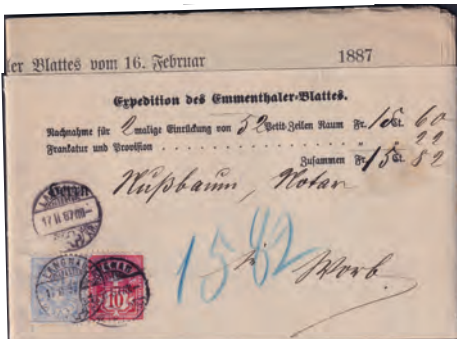 ler Blattes vom 16. Februar 1887
Expedition des Emmenthaler-Blattes.
Nachnahme für 2 malige Einrückung von 52 Petit-Zeilen Raum Fr. 15 Ct. 60
Frankatur und Provision . . . . . . . . . . . . . . . . „ „ 22
Zusammen Fr. 15 Ct. 82
Herrn
Nußbaum, Notar
17 II 87
1582
in Worb.
LANGNAU
10